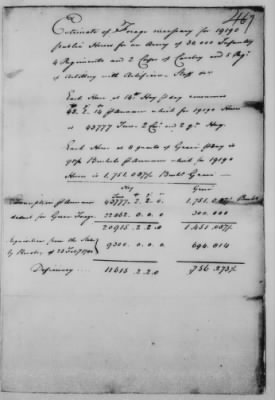 467
Estimate of Forage necessary for 19190
public Horses for an Army of 30,000 Infantry
4 Regiments and 2 Corps of Cavalry and 5 Regts
of Artillery with Artificers, Staff &c
Each Horse at 14 lb Hay p day consumes
45. 2. 14 p Annum which for 19190 Horses
is 43777 Tons. 2 Cwt and 2 qrs Hay.
Each Horse at 8 quarts of Grain p day is
91¼ Bushels p Annum which for 19190
Horses is 1,751,087½ Bushls Grain
Hay Grain
Consumption p Annum 43777. 2. 2. 0. 1,751,087½ Bushls
deduct for Green Forage 22862. 0. 0. 0 300.000
20915. 2. 2. 0 1.451.087½
Requisitions from the States
by Resolve of 9300. 0. 0. 0 694.814
Deficiency 11615. 2. 2. 0 756.273½